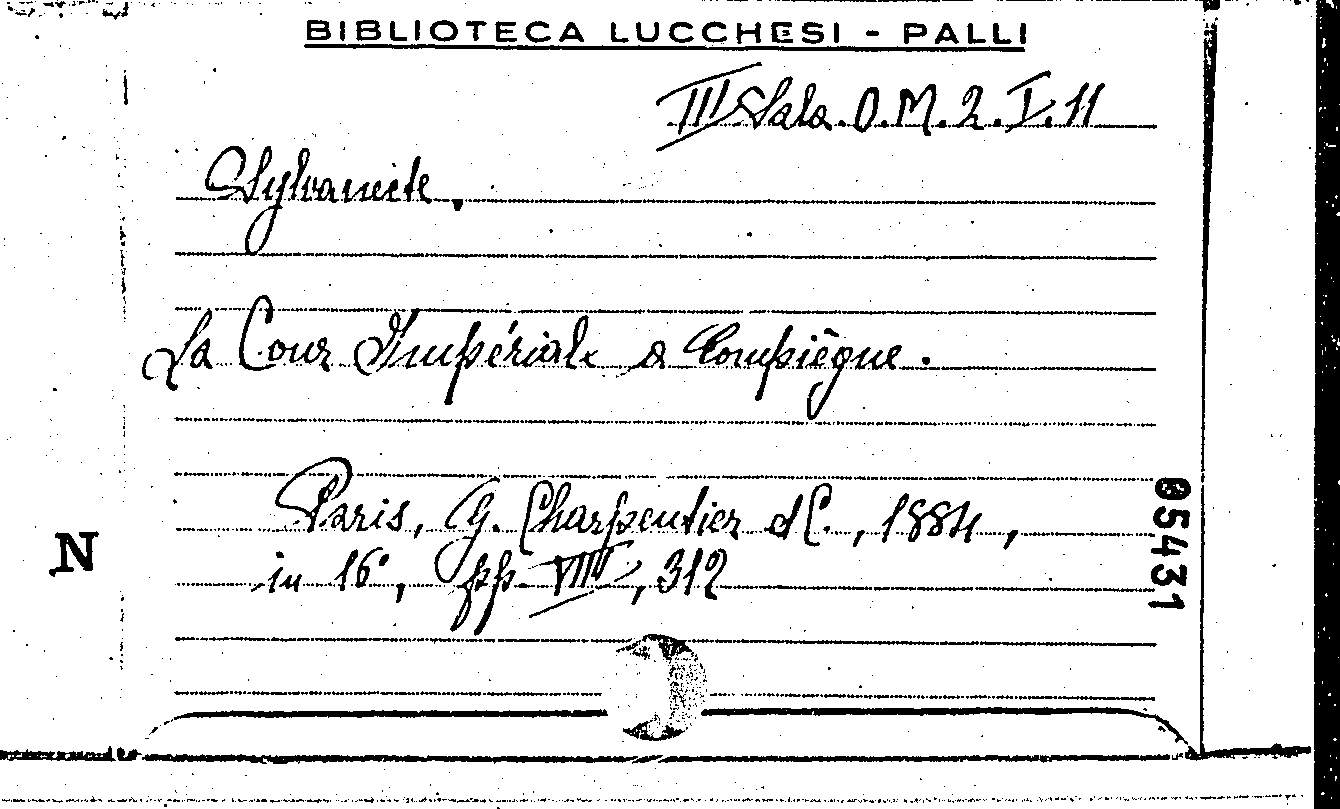 BIBLIOTECA LUCCHESI - PALLI
III Sala. O. M. 2. I. 11
Sylvanecte.
La Cour Impériale a Compiègne.
Paris, G. Charpentier et C., 1884,
in 16°, pp. VIII, 312
N
05431